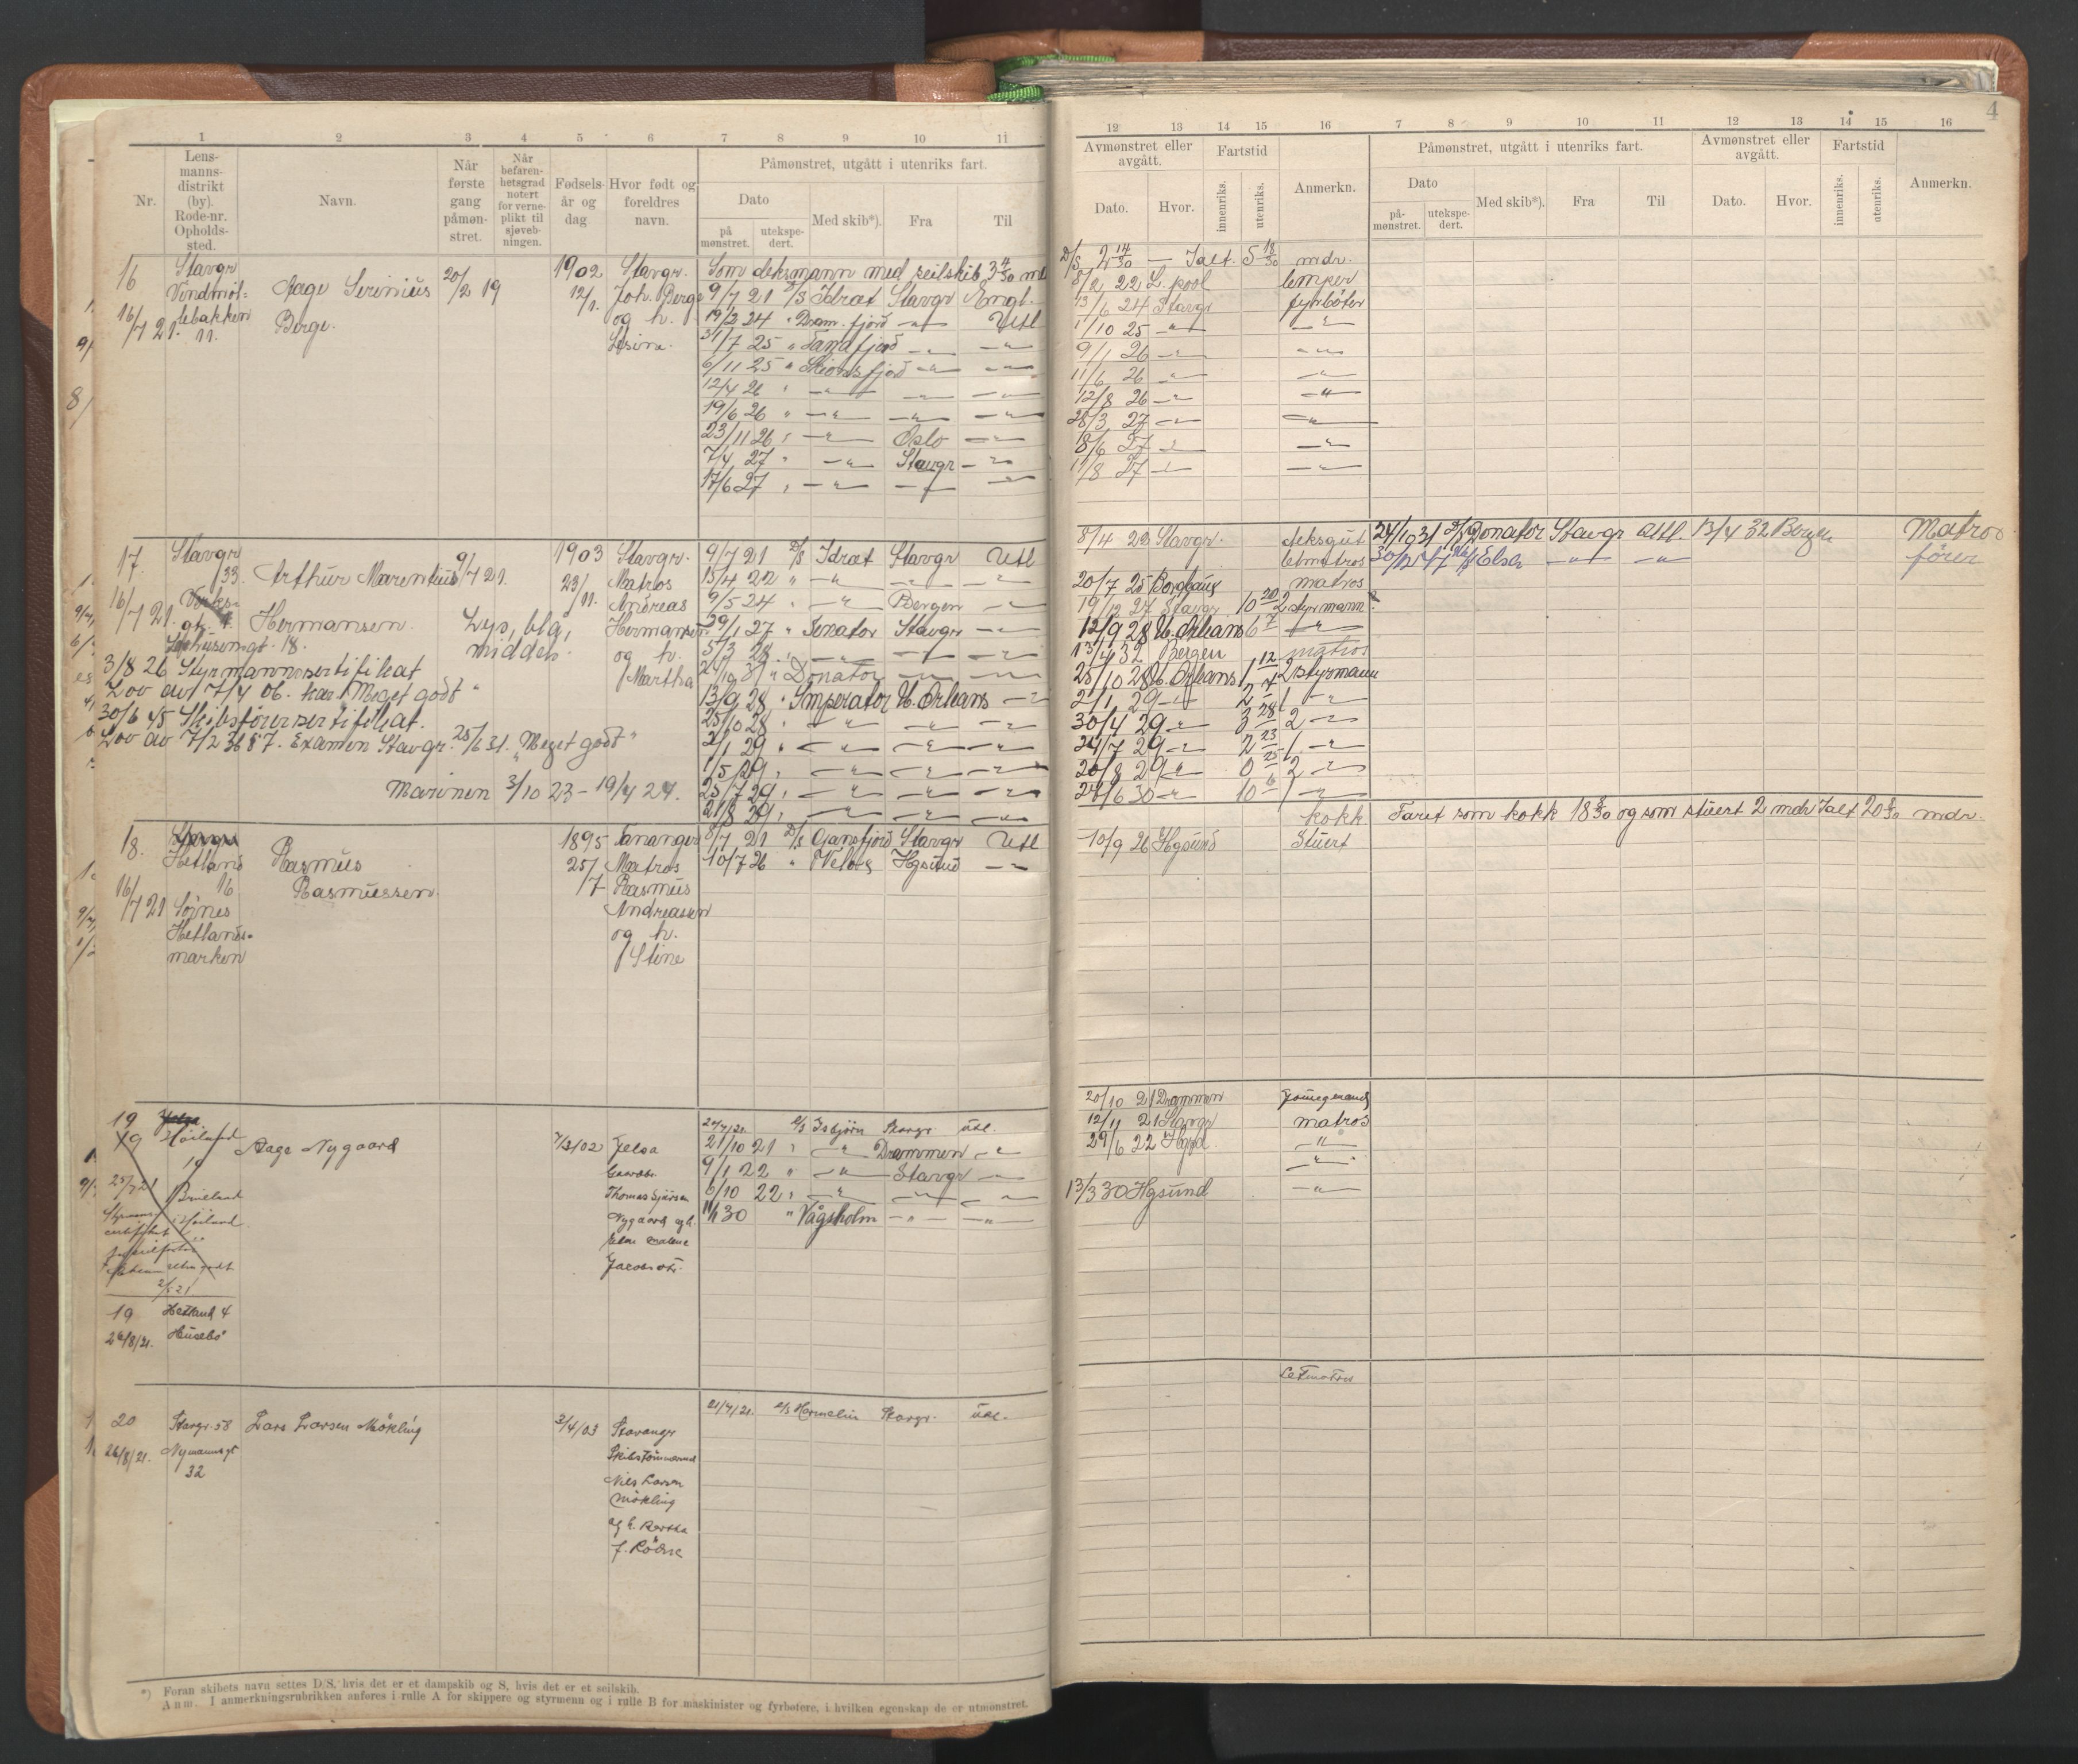 4
1 2 3 4 5 6 7 8 9 10 11
Nr.
Lens-
manns-
distrikt
(by).
Rode-nr.
Opholds-
sted.
Navn.
Når
første
gang
påmøn-
stret.
Når
befaren-
hetsgrad
notert
for verne-
plikt til
sjøveb-
ningen.
Fødsels-
år og
dag
Hvor født og
foreldres
navn.
Påmønstret, utgått i utenriks fart.
Dato
på
mønstret.
utekspe-
dert.
Med skib*).
Fra
Til
12 13 14 15 16 7 8 9 10 11 12 13 14 15 16
Avmønstret eller
avgått.
Dato.
Hvor.
Fartstid
innenriks.
utenriks.
Anmerkn.
Påmønstret, utgått i utenriks fart.
Dato
på-
mønstret.
utekspe-
dert.
Med skib*).
Fra
Til
Avmønstret eller
avgått.
Dato.
Hvor.
Fartstid
innenriks.
utenriks.
Anmerkn.
16 Stavgr
Vindmøl-
lebakken
11.
16/7 21.
Aage Serinius
Berge.
20/2 19
1902
12/1.
Stavgr.
Joh. Berge
og h.
Som deksmann med seilskib 3 4/30 md
9/7 21 D/S Idræt Stavgr Engl.
19/2 24 " Dram. fjord —"— Utl
31/7 25 " Tanafjord —"— —"—
6/11 25 " —"— —"—
12/4 26 " —"— —"— —"—
19/6 26 " —"— —"— —"—
23/11 26 " —"— Oslo —"—
7/4 27 " —"— Stavgr —"—
17/6 27 " —"— —"— —"—
D/S 2 14/30 — Ialt. 5 18/30 mdr.
8/2 22 L.pool lemper
13/6 24 Stavgr fyrbøter
1/10 25 —"— —"—
9/1 26 —"— —"—
11/6 26 —"— —"—
12/8 26 —"— —"—
28/3 27 —"— —"—
18/6 27 —"— —"—
11/8 27 —"— —"—
17. Stavgr
33.
16/7 21.
Arthur Marentius
Hermansen.
9/7 21.
Lys, blå,
middels
1903
23/11.
Stavgr.
Matros
Andreas
Hermansen
og h.
Martha
3/8 26 Styrmannssertifikat
Lov av 7/4 06. kar. Meget godt "
30/6 45 Skibsførersertifikat.
Lov av 7/2 3687. Examen Stavgr. 25/6 31. "Meget godt"
Marinen 3/10 23 – 19/4 24.
9/7 21 D/S Idræt Stavgr Utl
15/4 22 " —"— —"— —"—
9/5 24 " —"— Bergen —"—
29/1 27 " Senator Stavgr —"—
5/3 28 " —"— —"— —"—
24/10 31 " Donator —"— —"—
13/9 28 " Imperator N. Orleans —"—
25/10 28 " —"— —"— —"—
2/1 29 " —"— —"— —"—
1/5 29 " —"— —"— —"—
25/7 29 " —"— —"— —"—
21/8 29 " —"— —"— —"—
8/4 23 Stavgr. deksgut
letmatros
20/7 25 Bordeaux matros
19/12 27 Stavgr 10 20 2 styrmann
12/9 28 N. Orleans 6 7 —"—
13/4 32 Bergen matros
25/10 28 N. Orleans 1 12 2 styrmann
2/1 29 —"— 2 7 1 —"—
30/4 29 —"— 3 28 2 —"—
24/7 29 —"— 2 23 1 —"—
20/8 29 —"— 0 25 2 —"—
27/6 30 —"— 10 6 1 —"—
24/10 31 D/S Donator Stavgr Utl. 13/4 32 Bergen Matros
30/12 47 Elsa —"— —"— fører
18. Hetland
16
16/7 21
Hetlands-
marken
Rasmus
Rasmussen.
1895
25/7
Tananger
Matros
Rasmus
Andreasen
og h.
Stine
8/7 21 D/S Gansfjord Stavgr Utl
10/7 26 " Velox Hgsund —"—
kokk
10/9 26 Hgsund Stuert
Faret som kokk 18 8/30 og som stuert 2 mdr Ialt 20 8/30 mdr.
19
19 Høiland
19
25/7 21
Aage Nygaard
7/3/02
Jelsa
Gaardbr.
Thomas
Nygaard og h.
Jacobsdtr.
27/7/21. D/S Isbjørn Stavgr. Utl.
21/10 21 " —"— Drammen —"—
9/1 22 " —"— Stavgr —"—
6/10 22 " —"— —"— —"—
1/1 30 " Vågsholm —"— —"—
2/5 21
19 Hetland 4
26/8/21. Husebø
20/10 21 Drammen Jungmand
12/11 21 Stavgr matros
29/6 22 —"—
—"—
13/3 30 Hgsund —"—
20 Stavgr. 58
26/8/21. Nymannsgt
32
Lars Larsen Møkling
3/4/03
Stavanger
Skibstømmermand
Nils Larsen
Møkling
og h. Bertha
21/7/21. D/S Hermelin Stavgr. Utl.
Letmatros
*) Foran skibets navn settes D/S, hvis det er et dampskib og S, hvis det er et seilskib.
Anm. I anmerkningsrubrikken anføres i rulle A for skippere og styrmenn og i rulle B for maskinister og fyrbøtere, i hvilken egenskap de er utmønstret.